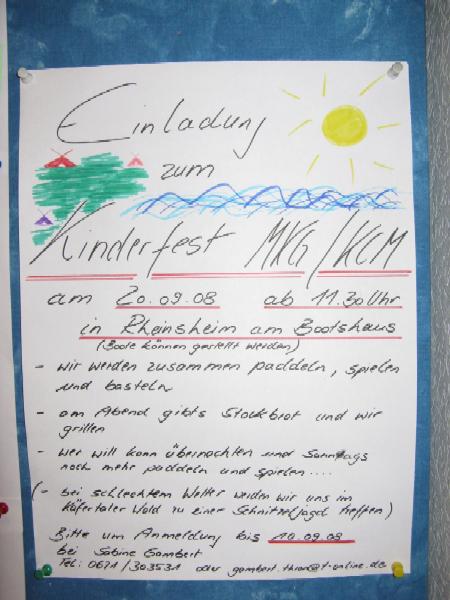 Einladung
zum
Kinderfest MKG/KCM
am 20.09.08 ab 11.30 Uhr
in Rheinsheim am Bootshaus
(Boote können gestellt werden)
- wir werden zusammen paddeln, spielen
und basteln
- am Abend gibts Stockbrot und wir
grillen
- wer will kann übernachten und Sonntags
noch mehr paddeln und spielen....
(- bei schlechtem Wetter werden wir uns im
Käfertaler Wald zu einer Schnitzeljagd treffen)
Bitte um Anmeldung bis 10.09.08
bei Sabine Gambert
Tel: 0621/303531 oder gambert.thron@t-online.de